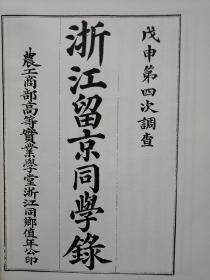 戊申第四次調查
浙江留京同學錄
農工商部高等實業學堂浙江同鄉值年公印